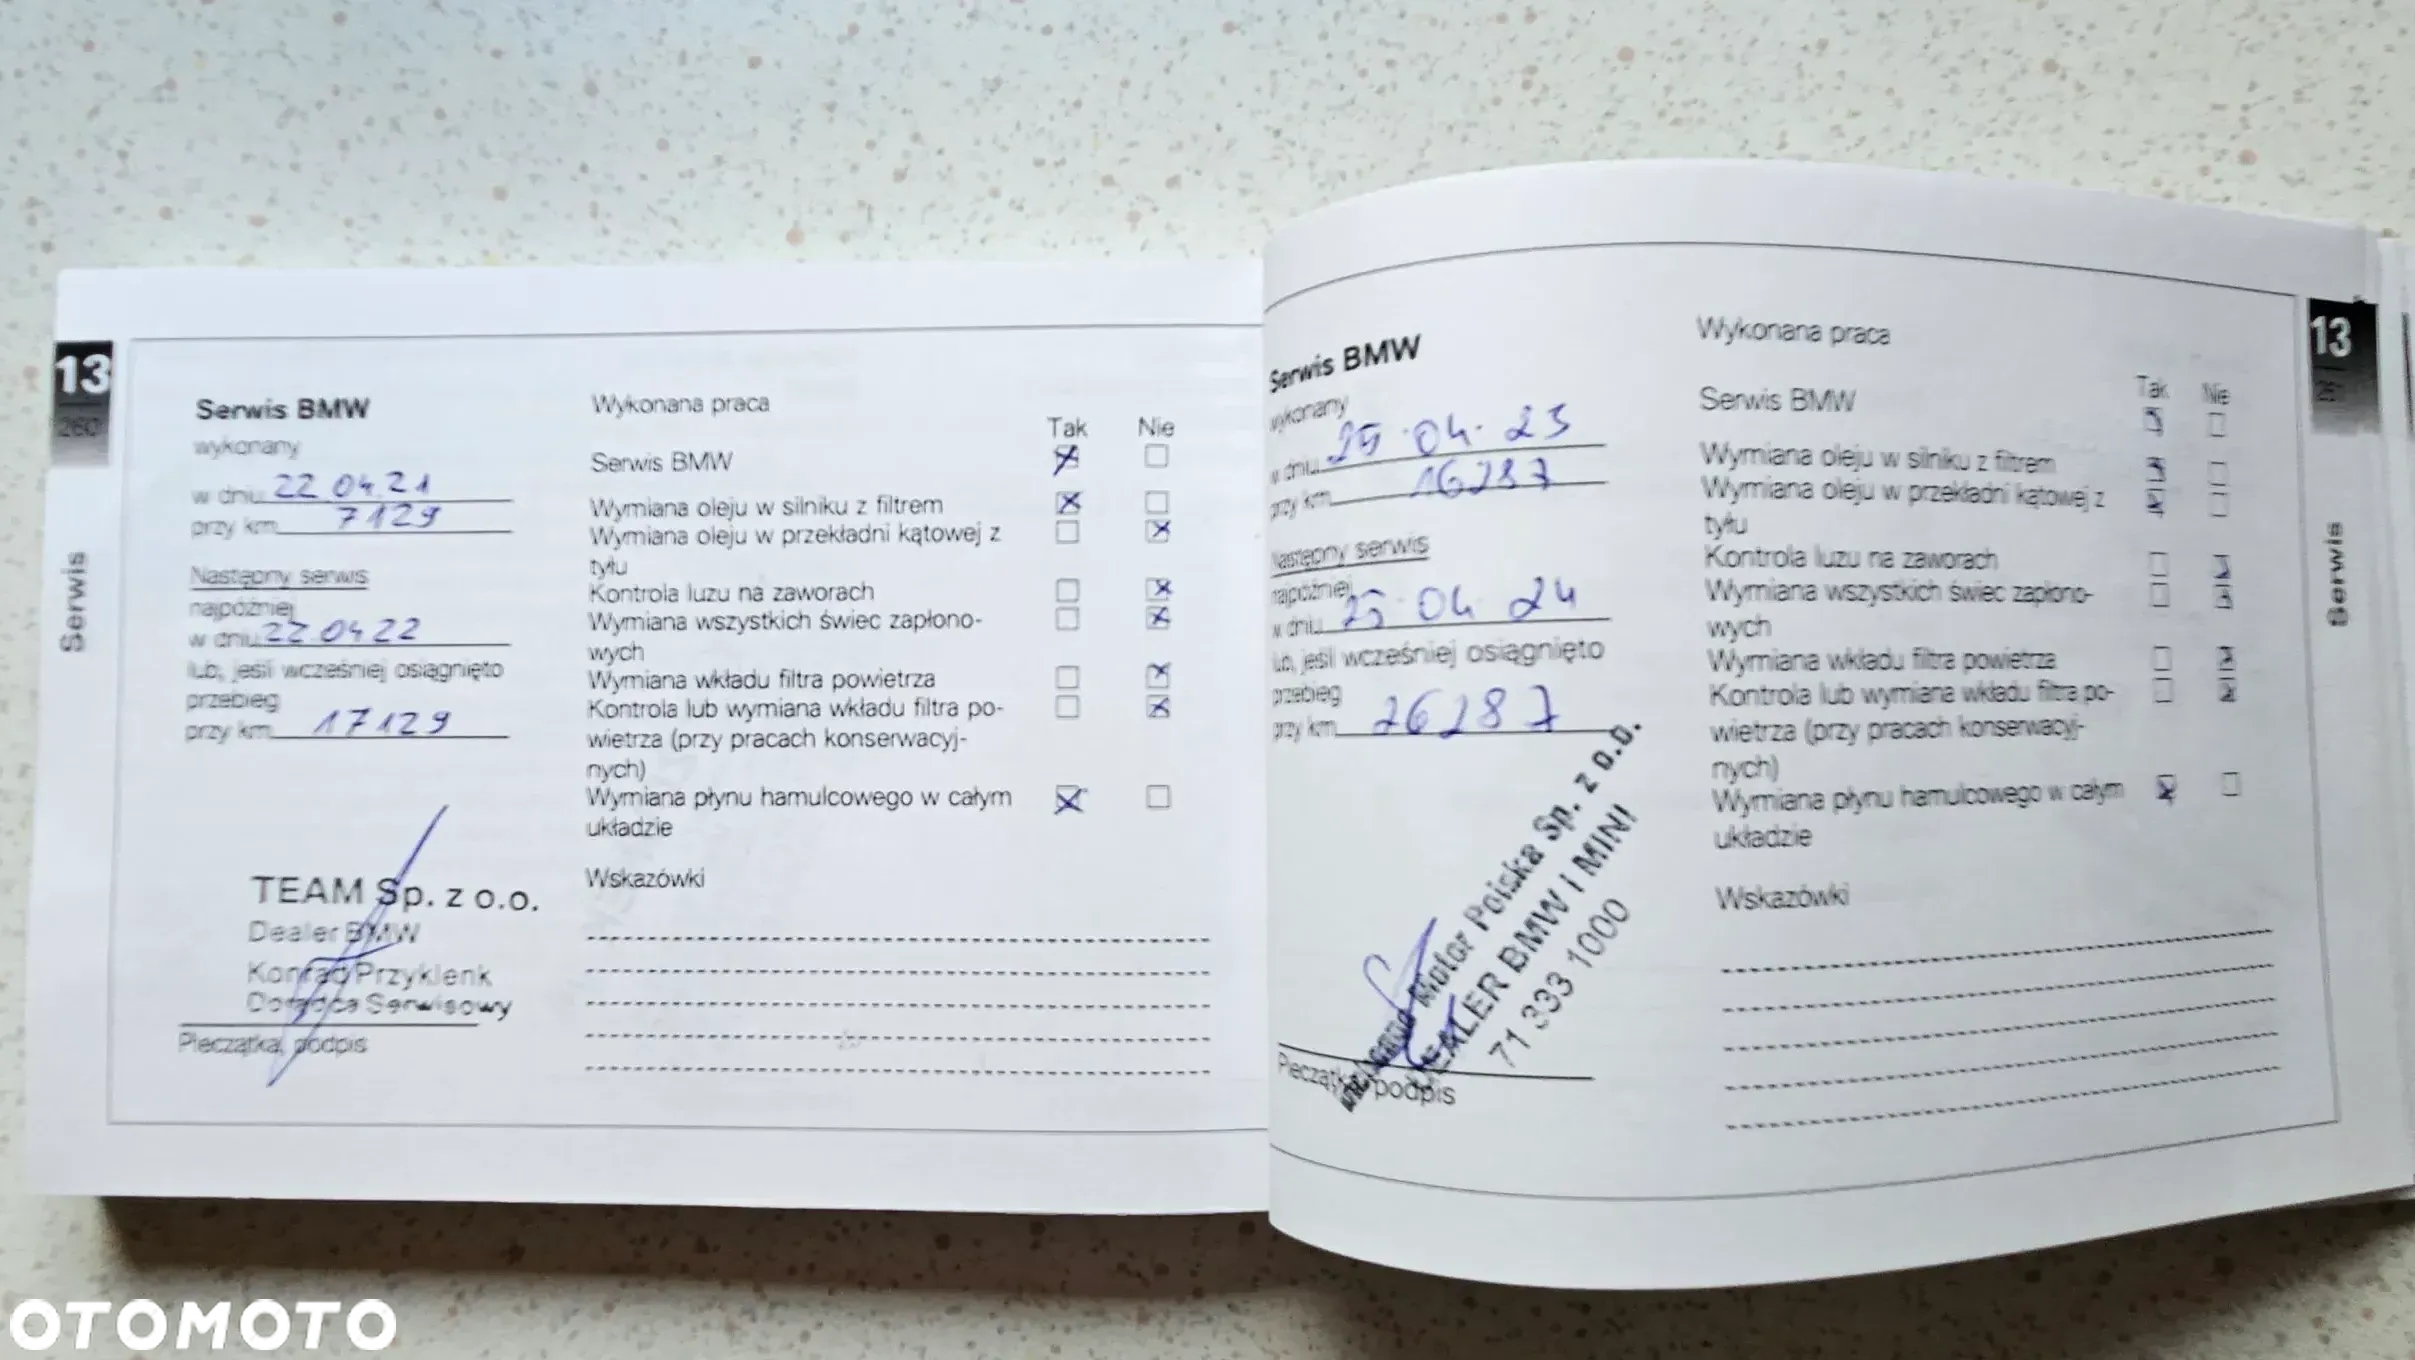 13
260
Serwis
Serwis BMW
wykonany
w dniu 22 04 21
przy km 7129
Następny serwis
najpóźniej
w dniu 22 04 22
lub, jeśli wcześniej osiągnięto
przebieg
przy km 17129
TEAM Sp. z o.o.
Dealer BMW
Konrad Przyklenk
Doradca Serwisowy
Pieczątka, podpis
Wykonana praca
Tak Nie
Serwis BMW
Wymiana oleju w silniku z filtrem
Wymiana oleju w przekładni kątowej z
tyłu
Kontrola luzu na zaworach
Wymiana wszystkich świec zapłono-
wych
Wymiana wkładu filtra powietrza
Kontrola lub wymiana wkładu filtra po-
wietrza (przy pracach konserwacyj-
nych)
Wymiana płynu hamulcowego w całym
układzie
Wskazówki
Serwis BMW
wykonany
w dniu 25 · 04 · 23
przy km 16287
Następny serwis
najpóźniej
w dniu 25 · 04 24
lub, jeśli wcześniej osiągnięto
przebieg
przy km 26287
Motor Polska Sp. z o.o.
DEALER BMW I MINI
71 333 1000
Pieczątka, podpis
Wykonana praca
Tak Nie
Serwis BMW
Wymiana oleju w silniku z filtrem
Wymiana oleju w przekładni kątowej z
tyłu
Kontrola luzu na zaworach
Wymiana wszystkich świec zapłono-
wych
Wymiana wkładu filtra powietrza
Kontrola lub wymiana wkładu filtra po-
wietrza (przy pracach konserwacyj-
nych)
Wymiana płynu hamulcowego w całym
układzie
Wskazówki
13
261
Serwis
OTOMOTO